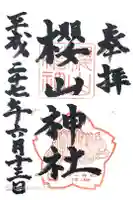 奉拝
櫻山神社
平成二十七年六月十三日